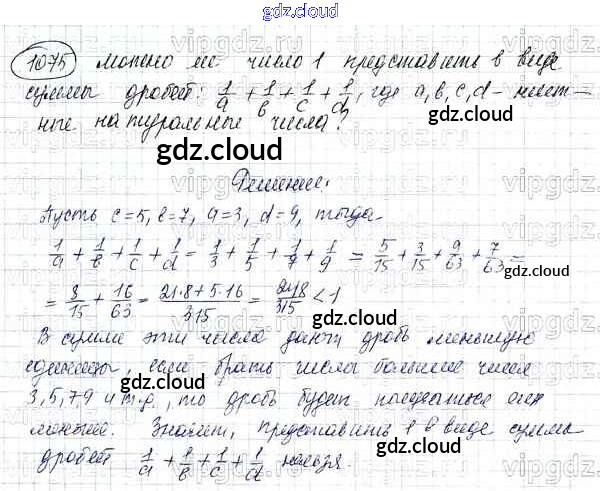 gdz.cloud
1075 можно ли число 1 представить в виде
суммы дробей: 1/a + 1/b + 1/c + 1/d, где a, b, c, d - нечет-
ные натуральные числа?
gdz.cloud
Решение.
Пусть c=5, b=7, a=3, d=9, тогда
1/a + 1/b + 1/c + 1/d = 1/3 + 1/5 + 1/7 + 1/9 = 5/15 + 3/15 + 9/63 + 7/63 =
= 8/15 + 16/63 = (21·8+5·16)/315 = 248/315 < 1
gdz.cloud
В сумме эти числа дают дробь меньшую
единицы, если брать числа большие чисел
3, 5, 7 9 и т.д., то дробь будет получаться ещё
меньше. Значит, представить 1 в виде суммы
дробей 1/a + 1/b + 1/c + 1/d нельзя.
gdz.cloud